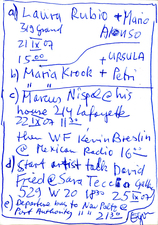 a) Laura Rubio + Mano
Alonso
319 Grand
21 IX 07
15:00
+ URSULA
b) Maria Krook + Petri
c) Marcus Nispel @ his
house 214 Lafayette
22 IX 07 11:30
then WF Kevin Breslin
@ Mexican Radio 16:00
d) Start artist talk David
Fried @ Sara Tecchia Gallery
529 W 20 18:00 25 IX 07
e) Departure bus to New Paltz @
Port Authority " " 21:30